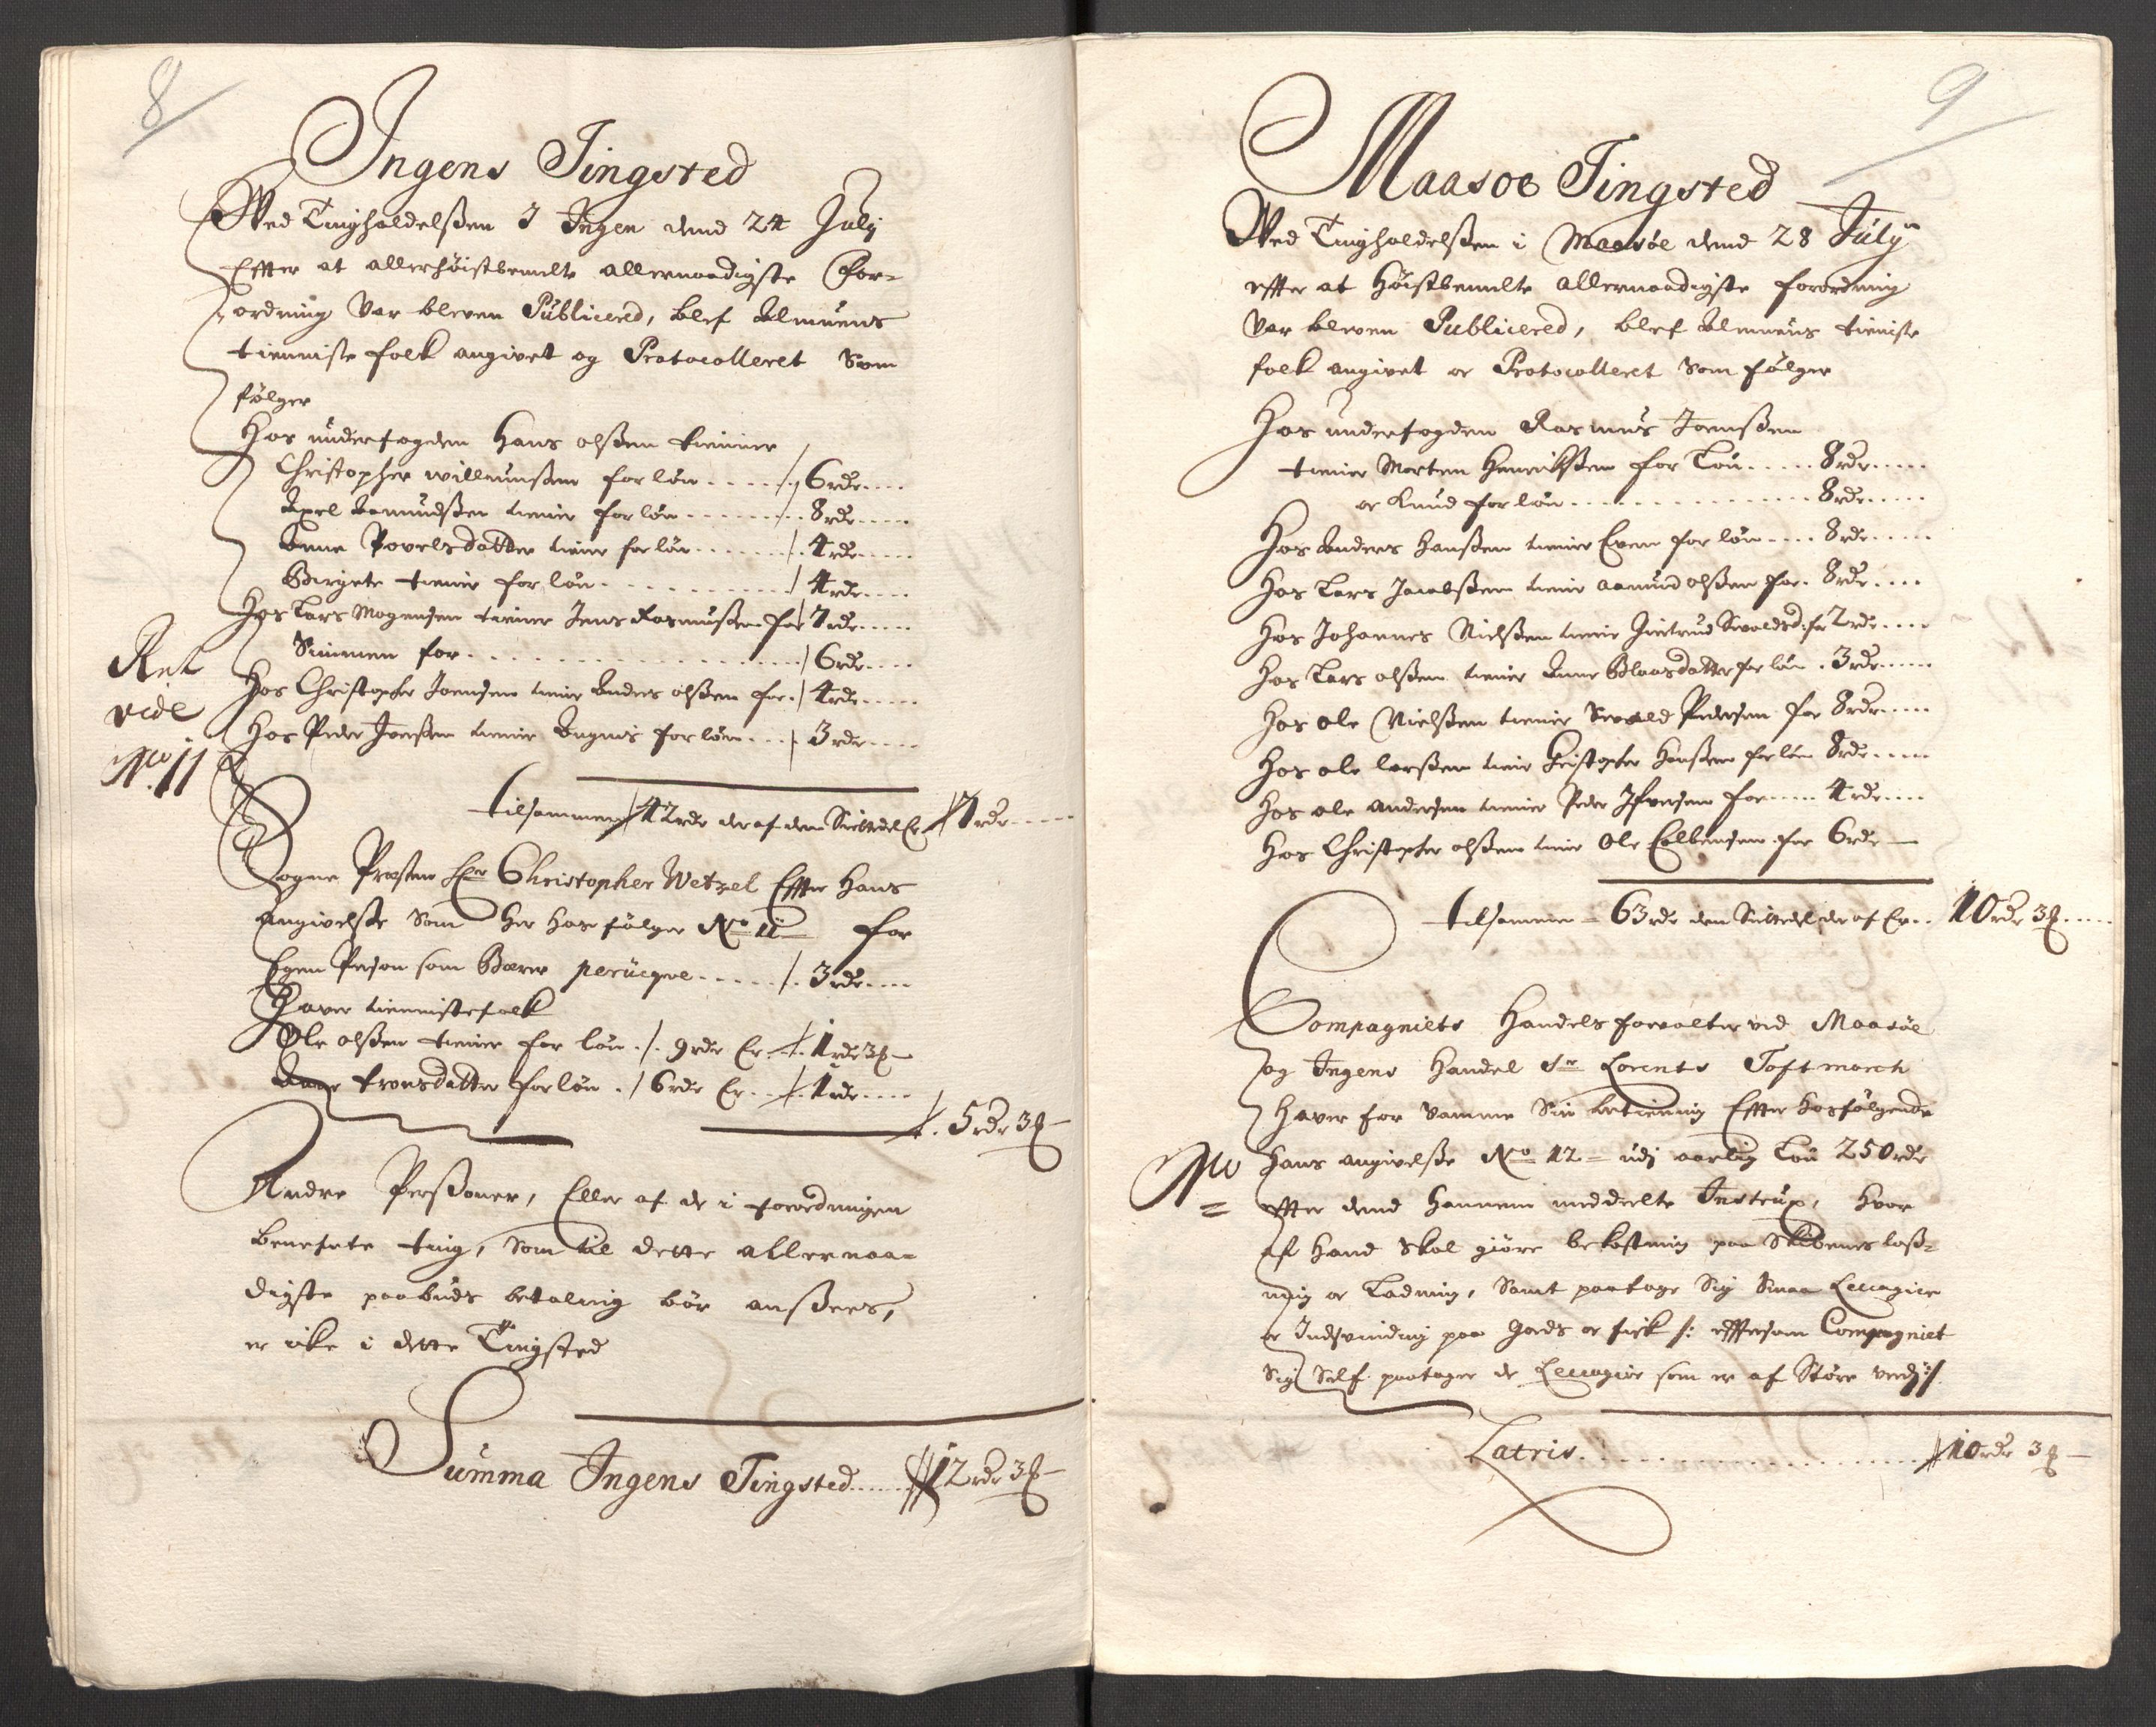 8
Ingens Tingsted
Ved Tingholdelßen I Ingen dend 24 July
Effter at allerhöistbemelte allernaadigste For-
ordning var bleven Publicered, blef Almuens
tienniste folk angivet og Protocolleret Som
følger
Hos underfogden Hans olßen tienner
Christopher willumßen for løn ..... 6 rdr ....
Axel Aamundßen tiener for løn ........ 8 rdr ....
Anne Povelsdatter tiener for løn ....... 4 rdr ....
Birgete tiener for løn ......... 4 rdr ....
Hos Lars Mogensen tiener Jens Rasmusßen for 7 rdr ....
Simmen for ................ 6 rdr ....
Hos Christopher Joensen tiener Anders olßen for . 4 rdr ....
Hos Peder Joenßen tiener Angnis for løn ... 3 rdr ....
Ret
vide
No. 11
tilsammen 42 rdr der af den Siettedel Er 7 rdr ....
Sogne Præsten Hr Christopher Wetzel Effter Hans
angivelße Som Her Hos følger No 11 for
Egen Person som Bærer perücqve ..... 3 rdr ....
Haver tiennistefolk
Ole olßen tiener for løn . 9 rdr Er . 1 rdr 3 ß
Anne Tronsdatter for løn . 6 rdr Er .. 1 rdr ....
5 rdr 3 ß
Andre Perßoner, Eller af de i forordningen
benefnte ting, Som til dette allernaa-
digste paabuds betaling bör ansßees,
er icke i dette Tingsted
Summa Ingens Tingsted ...... 12 rdr 3 ß
9
Maasöe Tingsted
Ved Tingholdelßen i Maasöe dend 28 July
effter at Höistbemelte allernaadigste forordning
Var bleven Publicered, blef Almuens tieniste
folk angivet oc Protocolleret Som følger
Hos underfogden Rasmus Joenßen
tiener Morten Henrichßen for Løn ..... 8 rdr ....
oc Knud for løn .............. 8 rdr ....
Hos Anders Hanßen tiener Even for løn .... 8 rdr ....
Hos Lars Jacobßen tiener Aamund olßen for . 8 rdr ....
Hos Johannes Nielßen tiener Giertrud Sivoldsd: for 2 rdr ....
Hos Lars olßen tiener Anne Olasdatter for løn . 3 rdr ....
Hos ole Nielßen tiener Sivald Pedersen for 8 rdr ....
Hos ole larßen tiener Cristopher Hanßen for løn 8 rdr ....
Hos ole Andersen tiener Peder Ifversen for .... 4 rdr ....
Hos Christopher olßen tiener Ole Colbensen for 6 rdr
tilsammen = 63 rdr den Siettedel der af Er .. 10 rdr 3 ß ....
Compagniets Handels forvalter ved Maasöe
og Ingens Handel Sr Lorents Toftmorch
Haver for Samme Sin betiening Effter Hosfølgende
No
=
Hans angivelße No 12 = udj aarlig Løn 250 rdr
effter dend Hannem meddelte Instrux, Hvor
af Hand skal giöre bekostning paa Skibenes loß-
ning oc Ladning, Samt paatage Sig Smaa Leccagier
oc Indsvinding paa Gods oc fisk /: efftersom Compagniet
Sig Self paatager de Leccagier som er af Större verdj :/
Latris ................ 10 rdr 3 ß